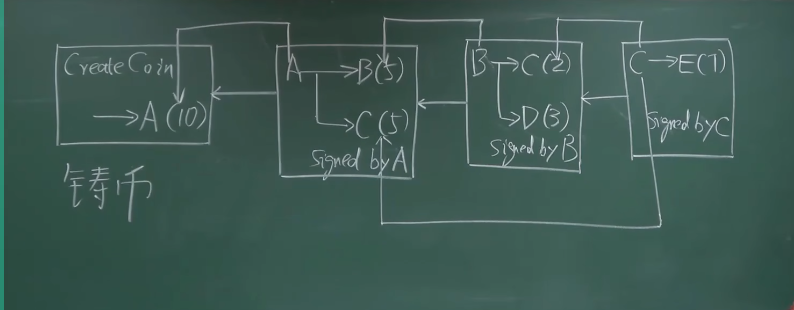 Create Coin
→A(10)
A→B(5)
→C(5)
signed by A
B→C(2)
→D(3)
signed by B
C→E(7)
signed by C
铸币